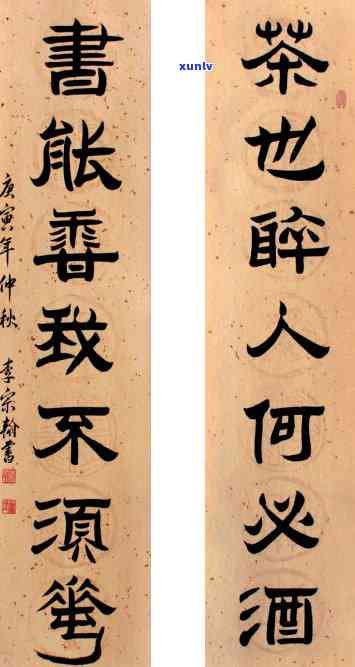 xunlv
茶也醉人何必酒
書能香我不須華
庚寅年仲秋 李宗翰書